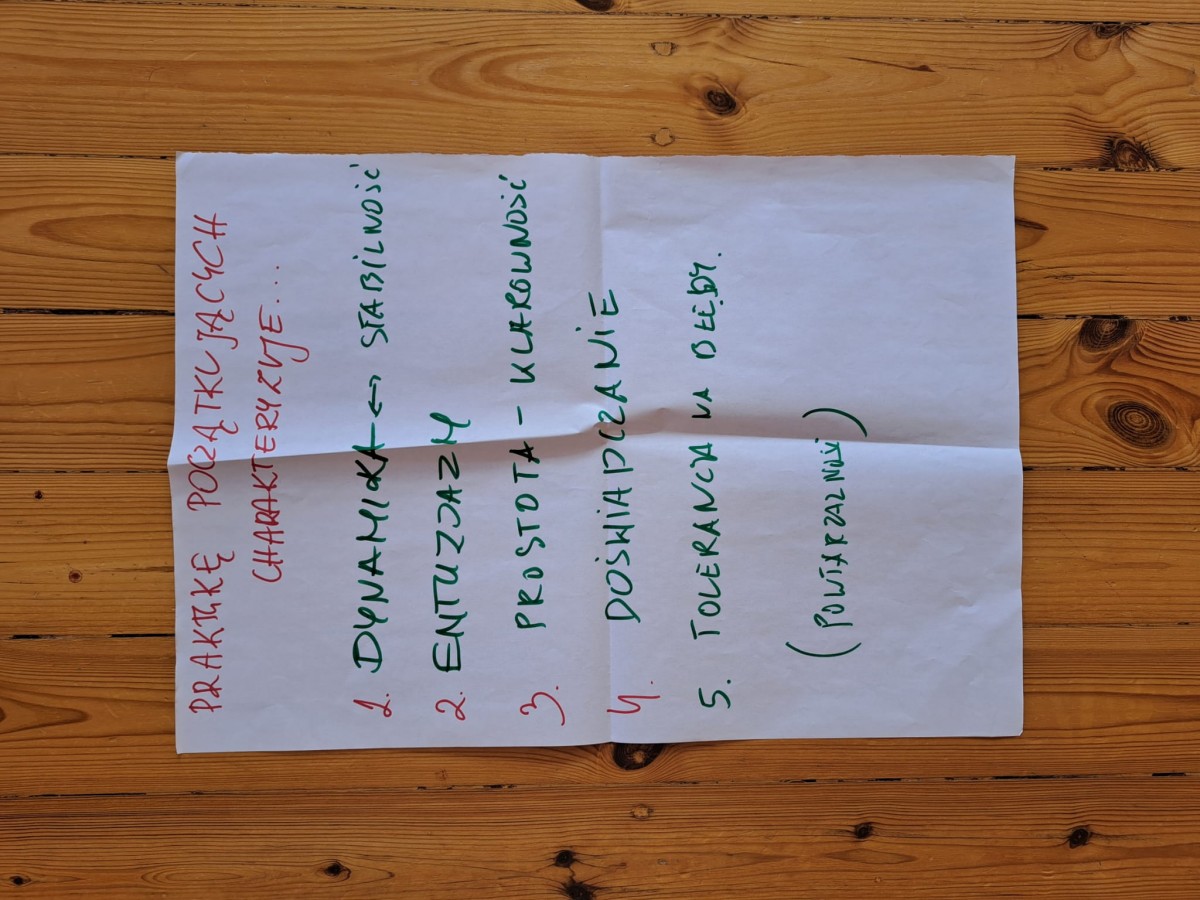 PRAKTYKĘ POCZĄTKUJĄCYCH
CHARAKTERYZUJE...
1. DYNAMIKA ↔ STABILNOŚĆ
2. ENTUZJAZM
3. PROSTOTA - KLAROWNOŚĆ
4. DOŚWIADCZANIE
5. TOLERANCJA NA BŁĘDY.
(POWTARZALNOŚĆ)